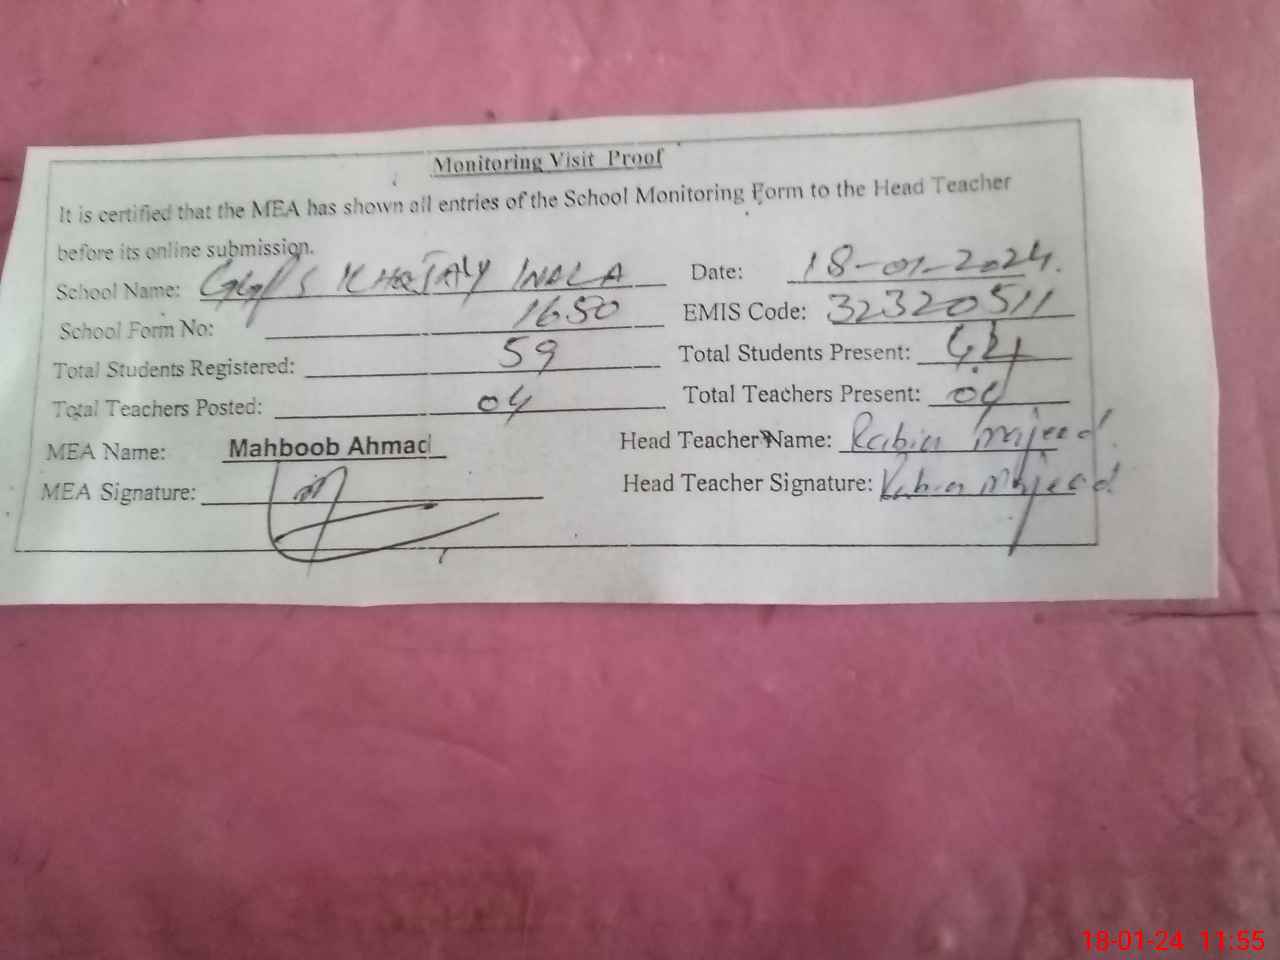 Monitoring Visit Proof
It is certified that the MEA has shown all entries of the School Monitoring Form to the Head Teacher
before its online submission.
School Name: Date: 18-01-2024.
School Form No: 1650 EMIS Code: 32320511
Total Students Registered: 59 Total Students Present:
Total Teachers Posted: 04 Total Teachers Present: 04
MEA Name: Mahboob Ahmad Head Teacher Name: Rabia Majeed
MEA Signature: Head Teacher Signature: Rabia Majeed
18-01-24 11:55